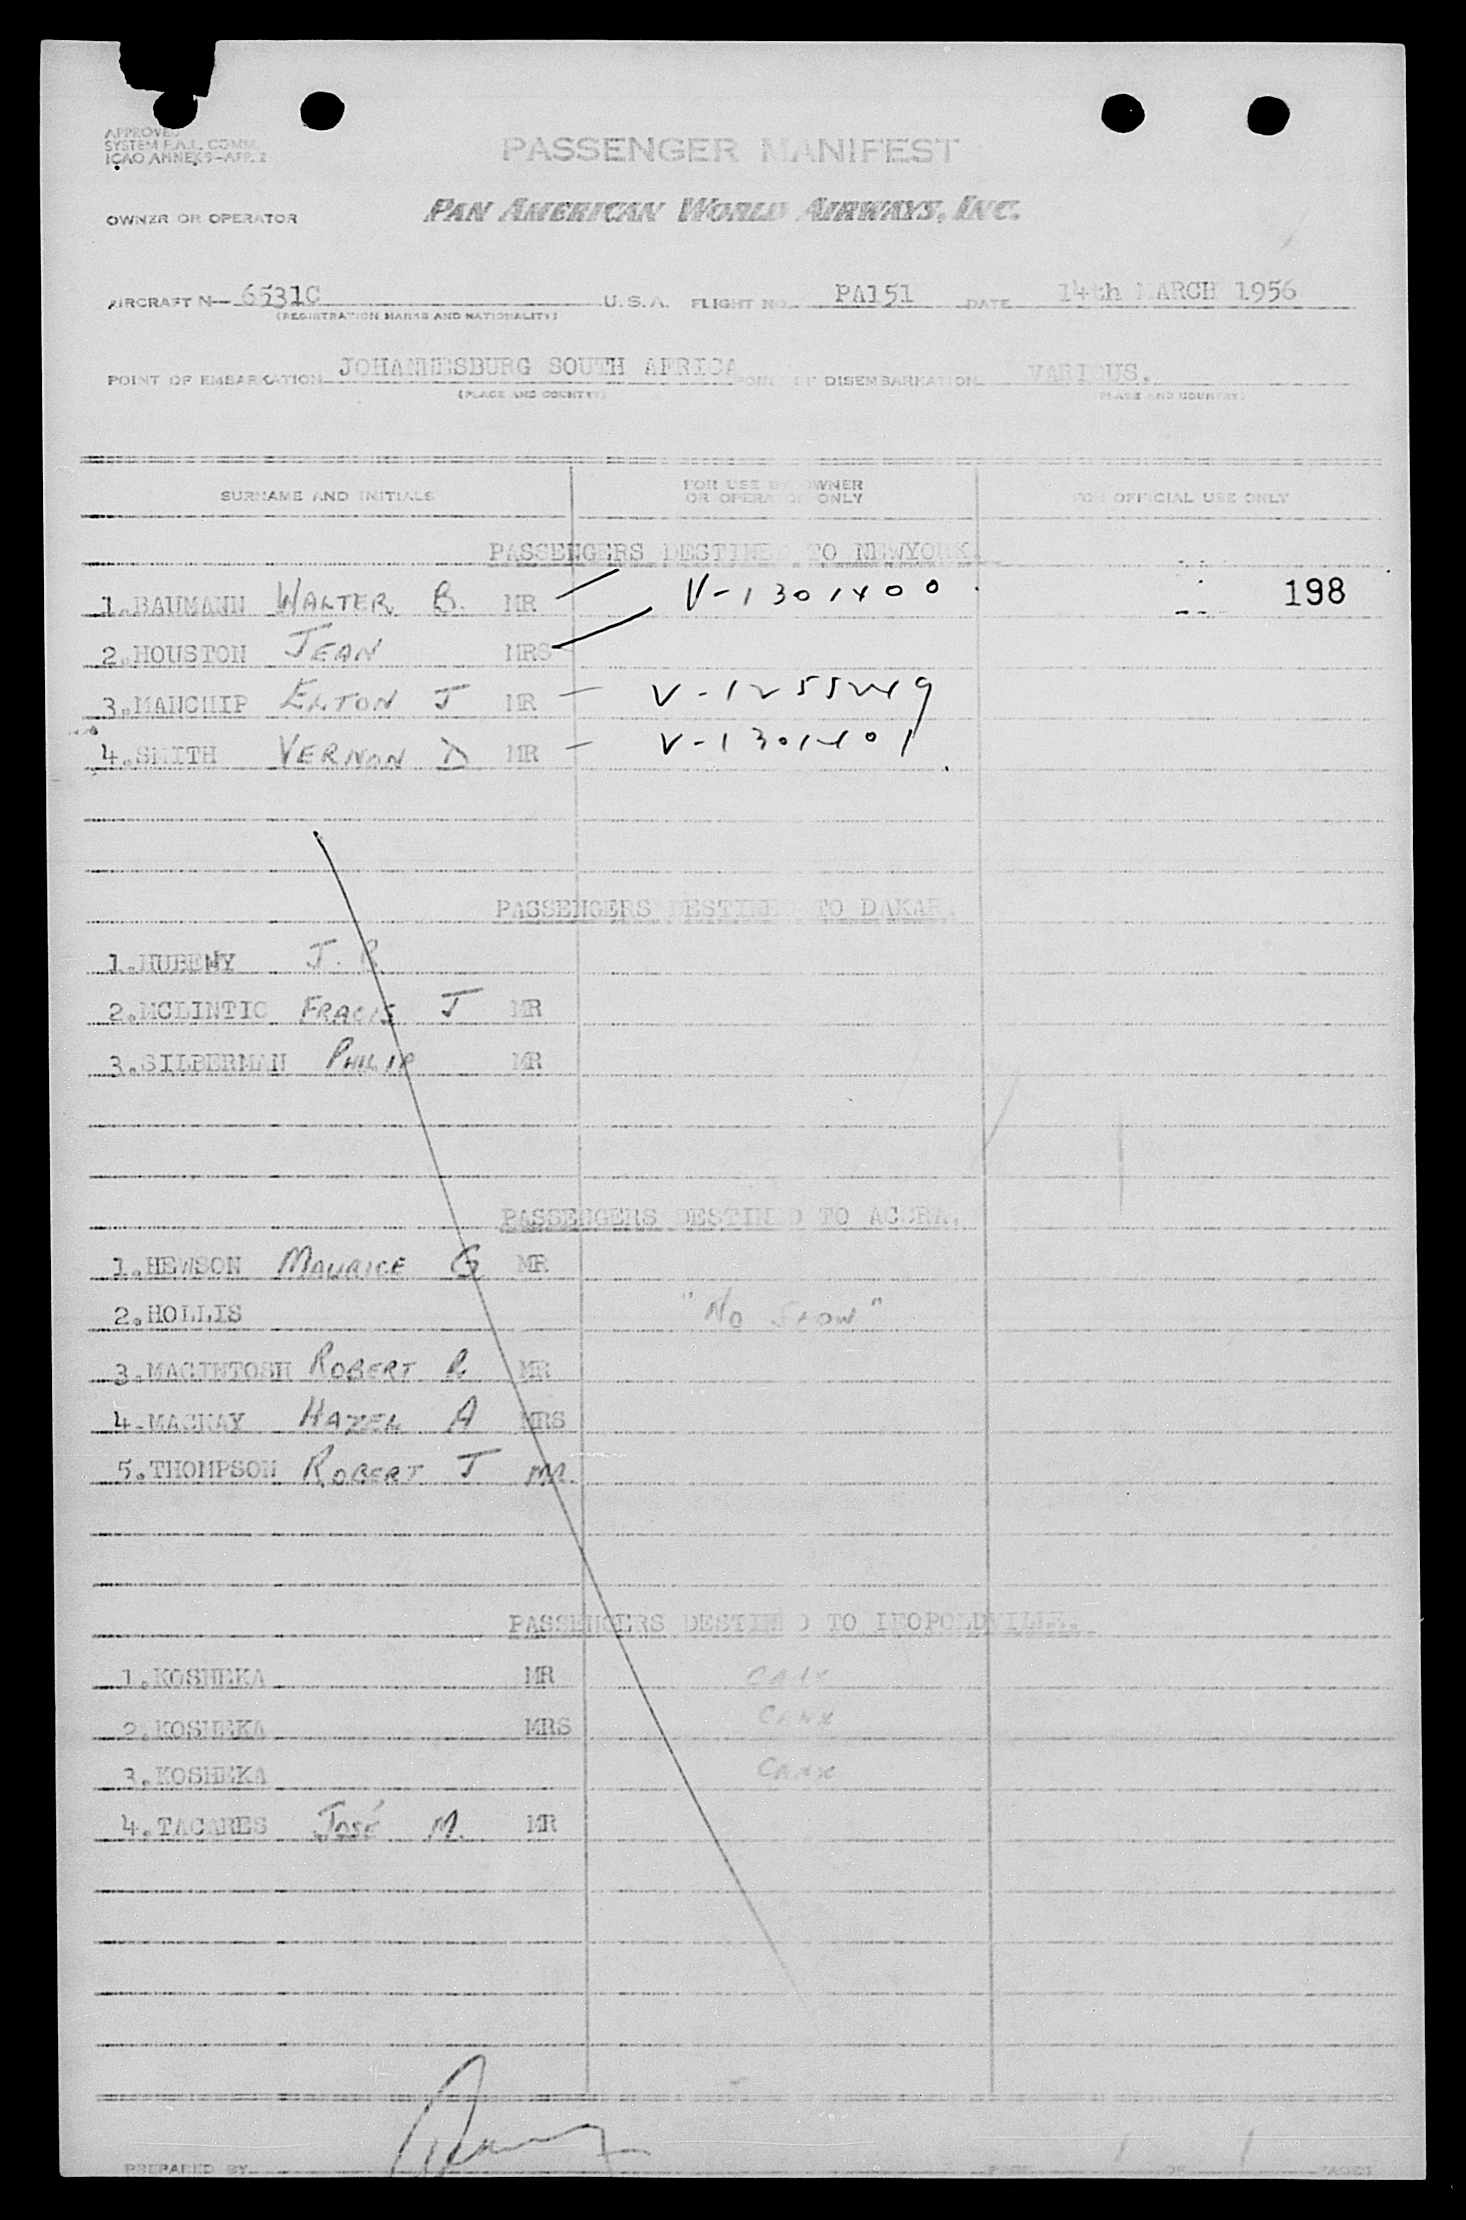 APPROVED
SYSTEM F.A.L. COMM.
ICAO ANNEX 9-APP. 2
PASSENGER MANIFEST
OWNER OR OPERATOR PAN AMERICAN WORLD AIRWAYS, INC.
AIRCRAFT N- 6531C U.S.A. FLIGHT NO. PA151 DATE 14th MARCH 1956
(REGISTRATION MARKS AND NATIONALITY)
POINT OF EMBARKATION JOHANNESBURG SOUTH AFRICA POINT OF DISEMBARKATION VARIOUS.
(PLACE AND COUNTRY) (PLACE AND COUNTRY)
SURNAME AND INITIALS FOR USE BY OWNER OR OPERATOR ONLY FOR OFFICIAL USE ONLY
PASSENGERS DESTINED TO NEWYORK.
1.BAUMANN WALTER B. MR V-1301400 198
2.HOUSTON JEAN MRS
3.MANCHIP ELTON J MR V-1255249
4.SMITH VERNON D MR V-1301401
PASSENGERS DESTINED TO DAKAR.
1.HUBENY J. R
2.MCLINTIC FRACIS J MR
3.SILBERMAN PHILIP MR
PASSENGERS DESTINED TO ACCRA.
1.HEWSON MAURICE G MR
2.HOLLIS "NO SHOW"
3.MACINTOSH ROBERT R MR
4.MACKAY HAZEL A MRS
5.THOMPSON ROBERT J MR.
PASSENGERS DESTINED TO LEOPOLDVILLE.
1.KOSHEKA MR CANX
2.KOSHEKA MRS CANX
3.KOSHEKA CANX
4.TACARES JOSÉ M. MR
PREPARED BY PAGE 1 OF 1 PAGES